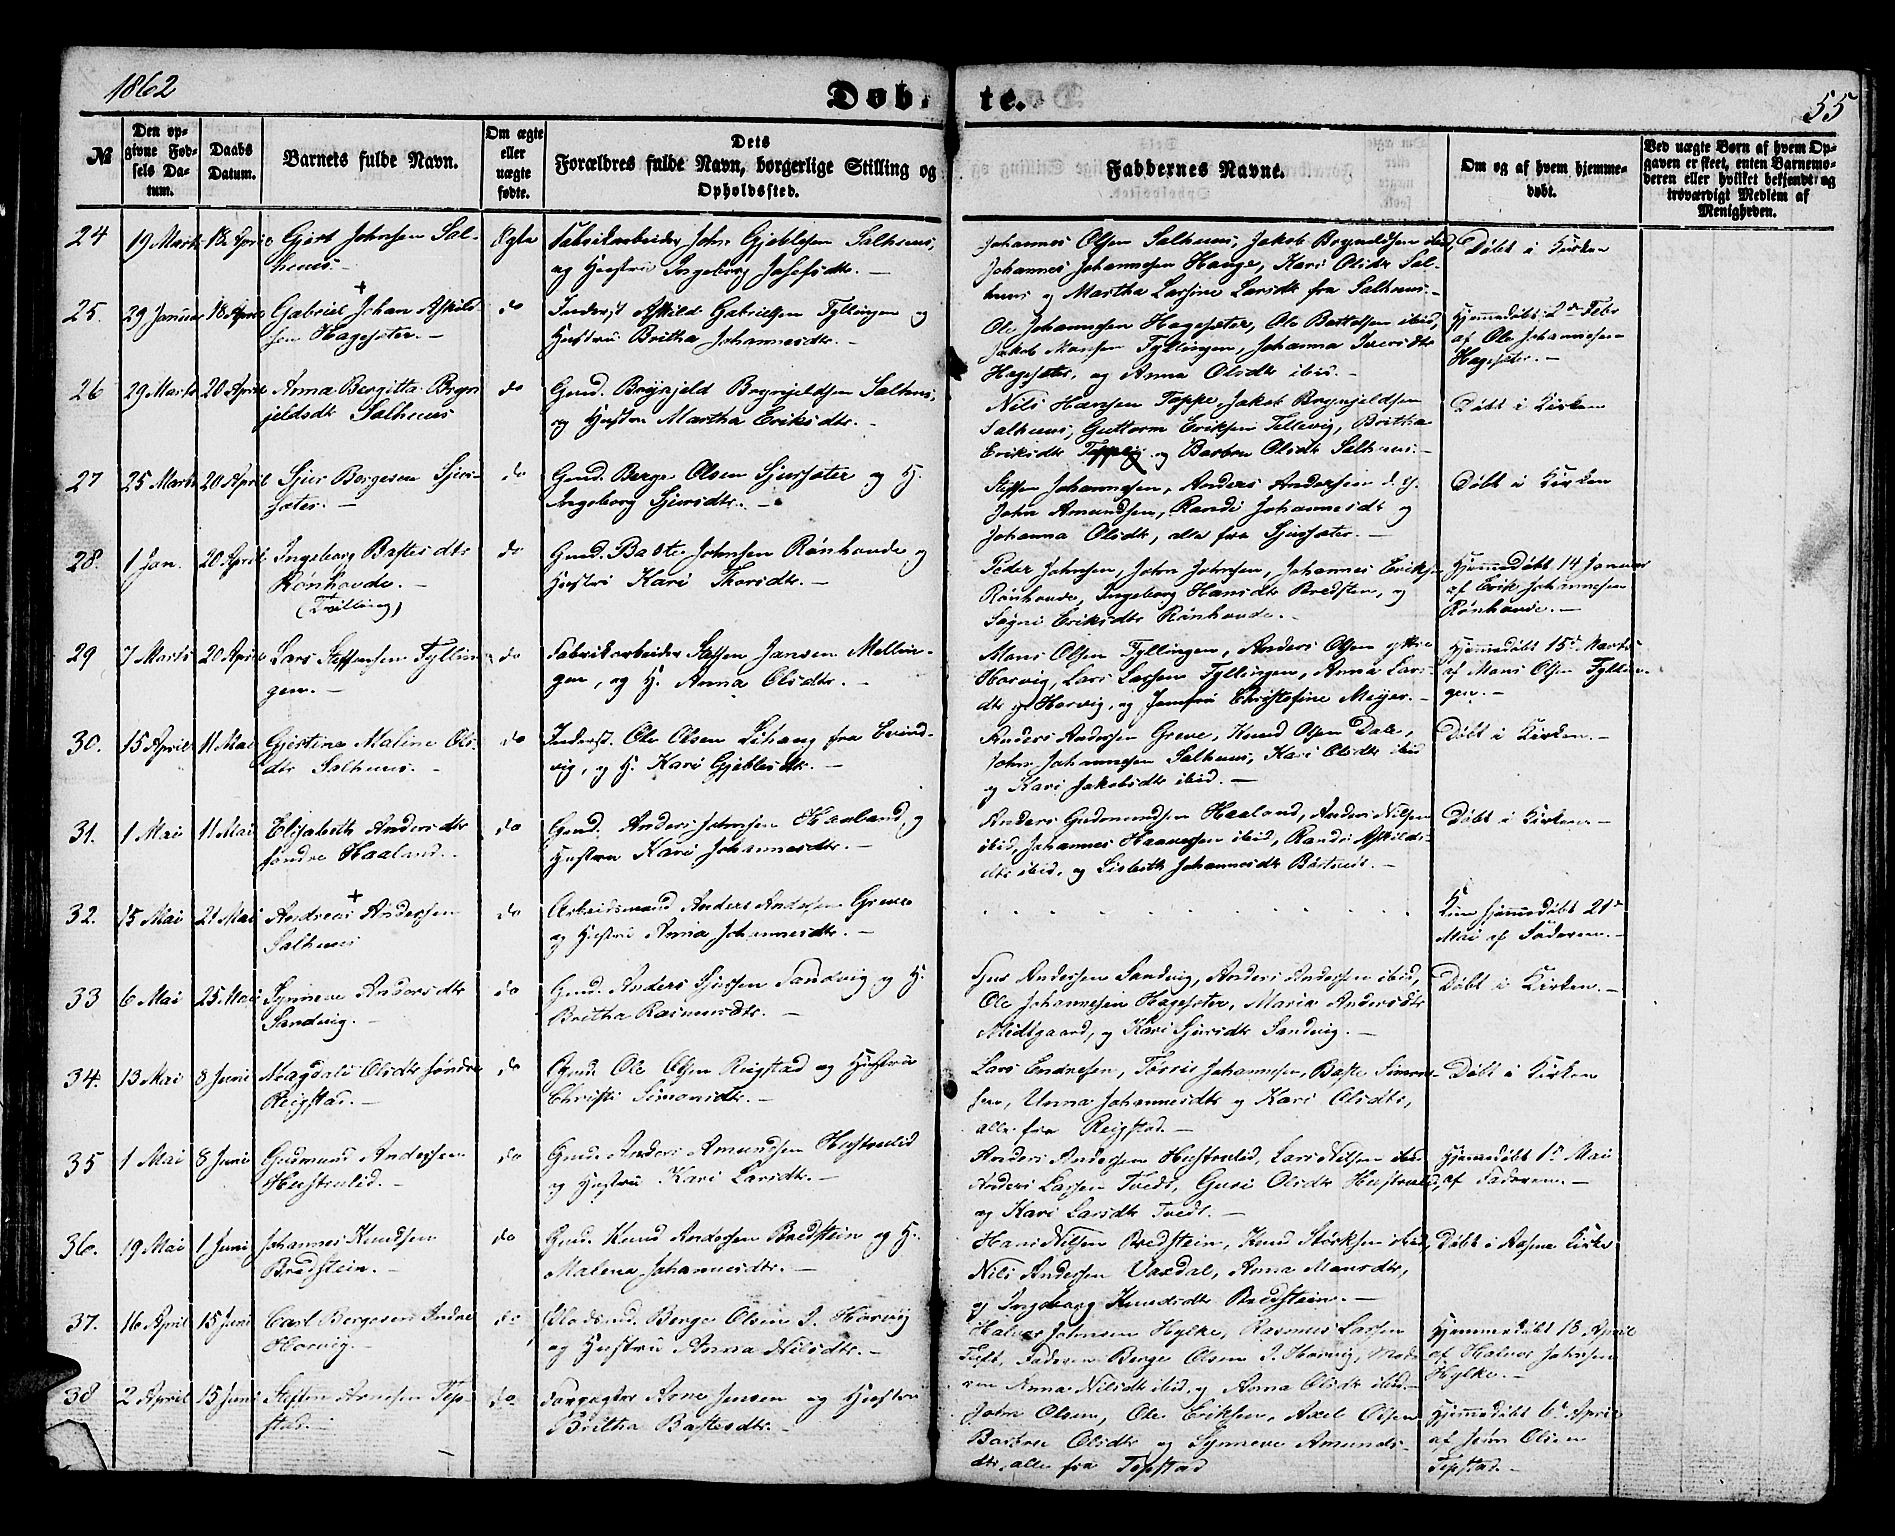 1862
Døbte.
55
№
Den opgivne Fødsels Datum.
Daabs Datum.
Barnets fulde Navn.
Om ægte eller uægte fødte.
Dets Forældres fulde Navn, borgerlige Stilling og Opholdssted.
Faddernes Navne.
Om og af hvem hjemmedøbt.
Ved uægte Børn af hvem Opgaven er skeet, enten Barnemoderen eller hvilket bekjendt og troværdigt Medlem af Menigheden.
24 19 Marts 18 April Gjert Johnsen Sal-
huus.-
Ægte
Fabrikarbeider John Gjeblesen Salhuus,
og Hustru Ingeborg Josefsdtr.-
Johannes Olsen Salhuus, Jakob Brynildsen ibid,
Johannes Johannesen Hauge, Kari Olsdtr Sal-
huus og Martha Larsine Larsdtr fra Salhuus.-
Døbt i Kirken
25. 29 Januar 18 April Gabriel Johan Askild-
sen Hagesæter.-
do
Inderst Askild Gabrielsen Fyllingen og
Hustru Britha Johannesdtr.-
Ole Johannesen Hagesæter, Ole Bottolsen ibid,
Jakob Monsen Fyllingen, Johanna Iversdtr
Hagesæter, og Anna Olsdtr ibid.-
Hjemmedøbt 2den Febr
af Ole Johannesen
Hagesæter.-
26 29 Marts 20 April Anna Bergitta Bryn
jeldsdtr Salhuus
do
Gmd. Brynjeld Brynjeldsen Salhuus,
og Hustru Martha Eriksdtr.-
Nils Hansen Toppe, Jakob Brynjeldsen
Salhuus, Guttorm Eriksen Tellevig, Britha
Eriksdtr og Barbra Olsdtr Salhuus.-
Døbt i Kirken
27 25 Marts 20 April Sjur Bergesen Sjur-
sæter.-
do
Gmd. Berge Olsen Sjursæter og H.
Ingeborg Sjursdtr.-
Steffen Johannesen, Anders Andersen d. y.
John Amundsen, Randi Johannesdtr og
Johanna Olsdtr, alle fra Sjursæter.-
Døbt i Kirken
28. 1 Jan. 20 April Ingeborg Bastesdtr
Rønhovde.-
(Tvilling)
do
Gmd. Baste Johnsen Rønhovde og
Hustru Kari Thorsdtr.-
Peder Johnsen, John Johnsen, Johannes Eriksen
Rønhovde, Ingeborg Hansdtr Bredsten, og
Sogni Eriksdtr Rønhovde.-
Hjemmedøbt 14 Januar
af Erik Johannesen
Rønhovde.-
29 7 Marts 20 April Lars Steffensen Fyllin
gen.-
do
Fabrikarbeider Steffen Jansen Mellin-
gen, og H. Anna Olsdtr.-
Mons Olsen Fyllingen, Anders Olsen yttre
Horvig, Lars Larsen Fyllingen, Anna Lars-
dtr y Horvig, og Jomfru Christofine Meyer.-
Hjemmedøbt 15de Marts
af Mons Olsen Fyllin-
gen.-
30. 15 April 11 Mai Gjertine Maline Ols-
dtr Salhuus.-
do
Inderst. Ole Olsen Lihaug fra Evind-
vig, og H. Kari Gjeblesdtr.-
Anders Andersen Greve, Knud Olsen Dale,
John Johannesen Salhuus, Kari Olsdtr ibid
og Kari Jakobsdtr ibid.-
Døbt i Kirken.-
31. 1 Mai 11 Mai Elisabeth Andersdtr
søndre Haaland.-
do
Gmd. Anders Johnsen Haaland, og
Hustru Kari Johannesdtr.-
Anders Gudmundsen Haaland, Anders Nilsen
ibid, Johannes Haavesen ibid, Randi Askilds-
dtr ibid, og Lisbeth Johannesdtr Børtvedt.-
Døbt i Kirken.-
32. 15 Mai 21 Mai Andreas Andersen
Salhuus
do
Arbeidsmand Anders Andersen Greve
og Hustru Anna Johannesdtr.-
Kun hjemmedøbt 21de
Mai af Faderen.-
33 6 Mai 25 Mai Synneve Andersdtr
Sandvig.-
do
Gmd. Anders Sjursen Sandvig og H
Britha Rasmusdtr.-
Sjur Andersen Sandvig, Anders Andersen ibid,
Ole Johannesen Hagesæter, Maria Andersdtr
Midtgaard, og Kari Sjursdtr Sandvig.-
Døbt i Kirken.-
34. 13 Mai 8 Juni Magdali Olsdtr søndre
Reigstad.-
do
Gmd. Ole Olsen Reigstad og Hustru
Christi Simonsdtr.-
Lars Endresen, Torris Johannesen, Baste Simon-
sen, Unna Johannesdtr og Kari Olsdtr,
alle fra Reigstad.-
Døbt i Kirken
35 1 Mai 8 Juni Gudmund Andersen
Hustvelid.-
do
Gmd. Anders Amundsen Hustvelid
og Hustru Kari Larsdtr.-
Anders Andersen Hustvelid, Lars Nilsen ibid
Anders Larsen Tvedt, Guri Olsdtr Hustvelid,
og Kari Larsdtr Tvedt.-
Hjemmedøbt 1de Mai
af Faderen.-
36. 19 Mai 1 Juni Johannes Knudsen
Bredstein.-
do
Gmd. Knud Andersen Bredstein og H.
Malena Johannesdtr.-
Hans Nilsen Bredstein, Knud Størksen ibid,
Nils Andersen Vaxdal, Anna Monsdtr,
og Ingeborg Knudsdtr Bredstein.-
Døbt i Aasene Kirke
37. 16 April 15 Juni Carl Bergesen Indre
Horvig.-
do
Pladsmd. Berge Olsen I. Horvig
og Hustru Anna Nilsdtr.-
Halvor Johnsen Hylke, Rasmus Larsen
Toft, Faderen Berge Olsen I. Horvig, Mode-
ren Anna Nilsdtr ibid, og Anna Olsdtr ibid.-
Hjemmedøbt 18 April
af Halvor Johnsen
Hylke.-
38 2 April 15 Juni Steffen Arnesen Tep-
stad.-
do
Forpagter Arne Jensen og Hustru
Britha Bastesdtr.-
John Olsen, Ole Eriksen, Axel Olsen
Barbra Olsdtr og Synneve Amunds-
dtr, alle fra Tepstad
Hjemmedøbt 6te April
af John Olsen
Tepstad.-